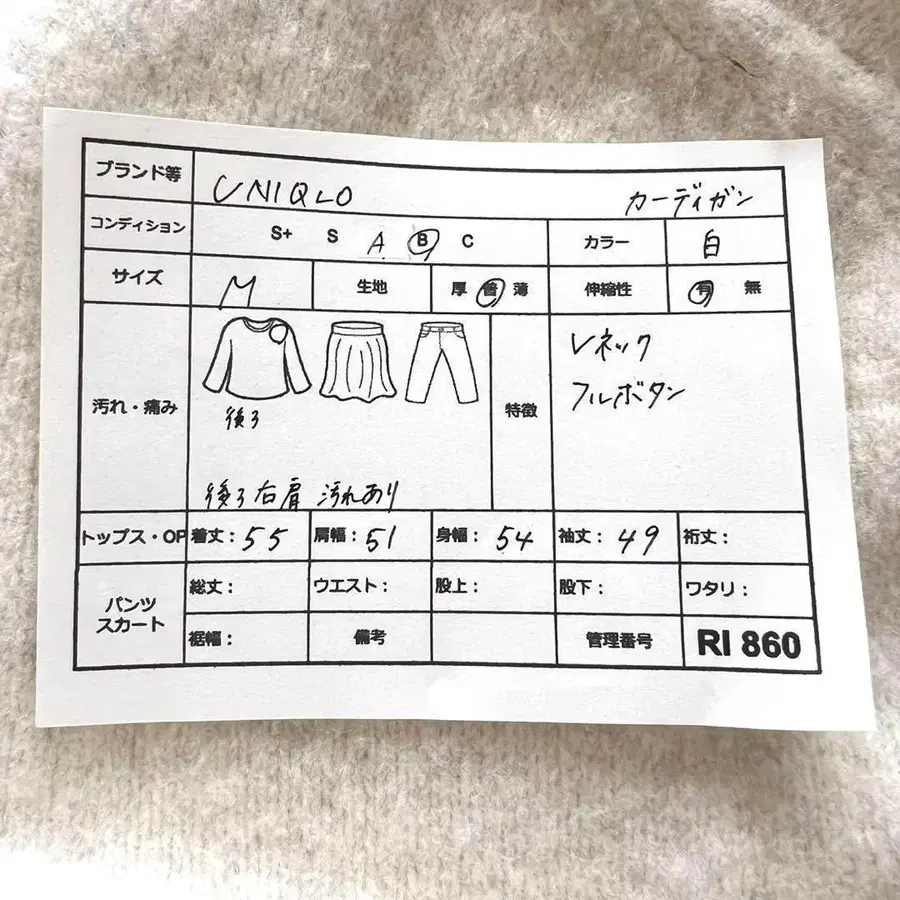 ブランド等 UNIQLO カーディガン
コンディション S+ S A B C カラー 白
サイズ M 生地 厚 普 薄 伸縮性 有 無
汚れ・痛み 後ろ 特徴 Vネック
フルボタン
後ろ右肩 汚れあり
トップス・OP 着丈：55 肩幅：51 身幅：54 袖丈：49 裄丈：
パンツ スカート 総丈： ウエスト： 股上： 股下： ワタリ：
裾幅： 備考 管理番号 RI 860